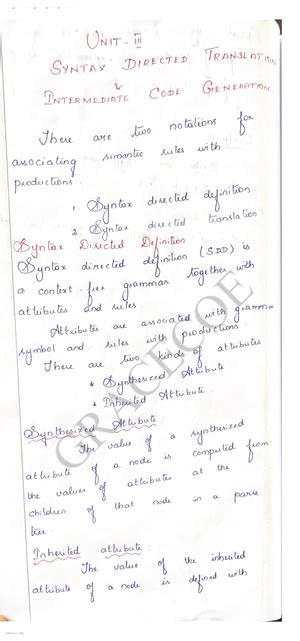 UNIT - III
SYNTAX DIRECTED TRANSLATION
&
INTERMEDIATE CODE GENERATION
There are two notations for
associating semantic rules with
productions.
1. Syntax directed definition
2. Syntax directed translation
Syntax Directed Definition
Syntax directed definition (SDD) is
a context-free grammar together with
attributes and rules.
Attributes are associated with grammar
symbol and rules with productions.
There are two kinds of attributes
* Synthesized Attribute
* Inherited Attribute.
Synthesized Attribute
The value of a synthesized
attribute of a node is computed from
the values of attributes at the
children of that node in a parse
tree.
Inherited attribute:
The value of the inherited
attribute of a node is defined with
GRACECOE